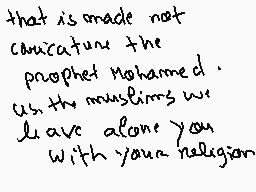 that is made not
caricature the
prophet Mohammed.
us. the muslims we
leave alone you
with your religion